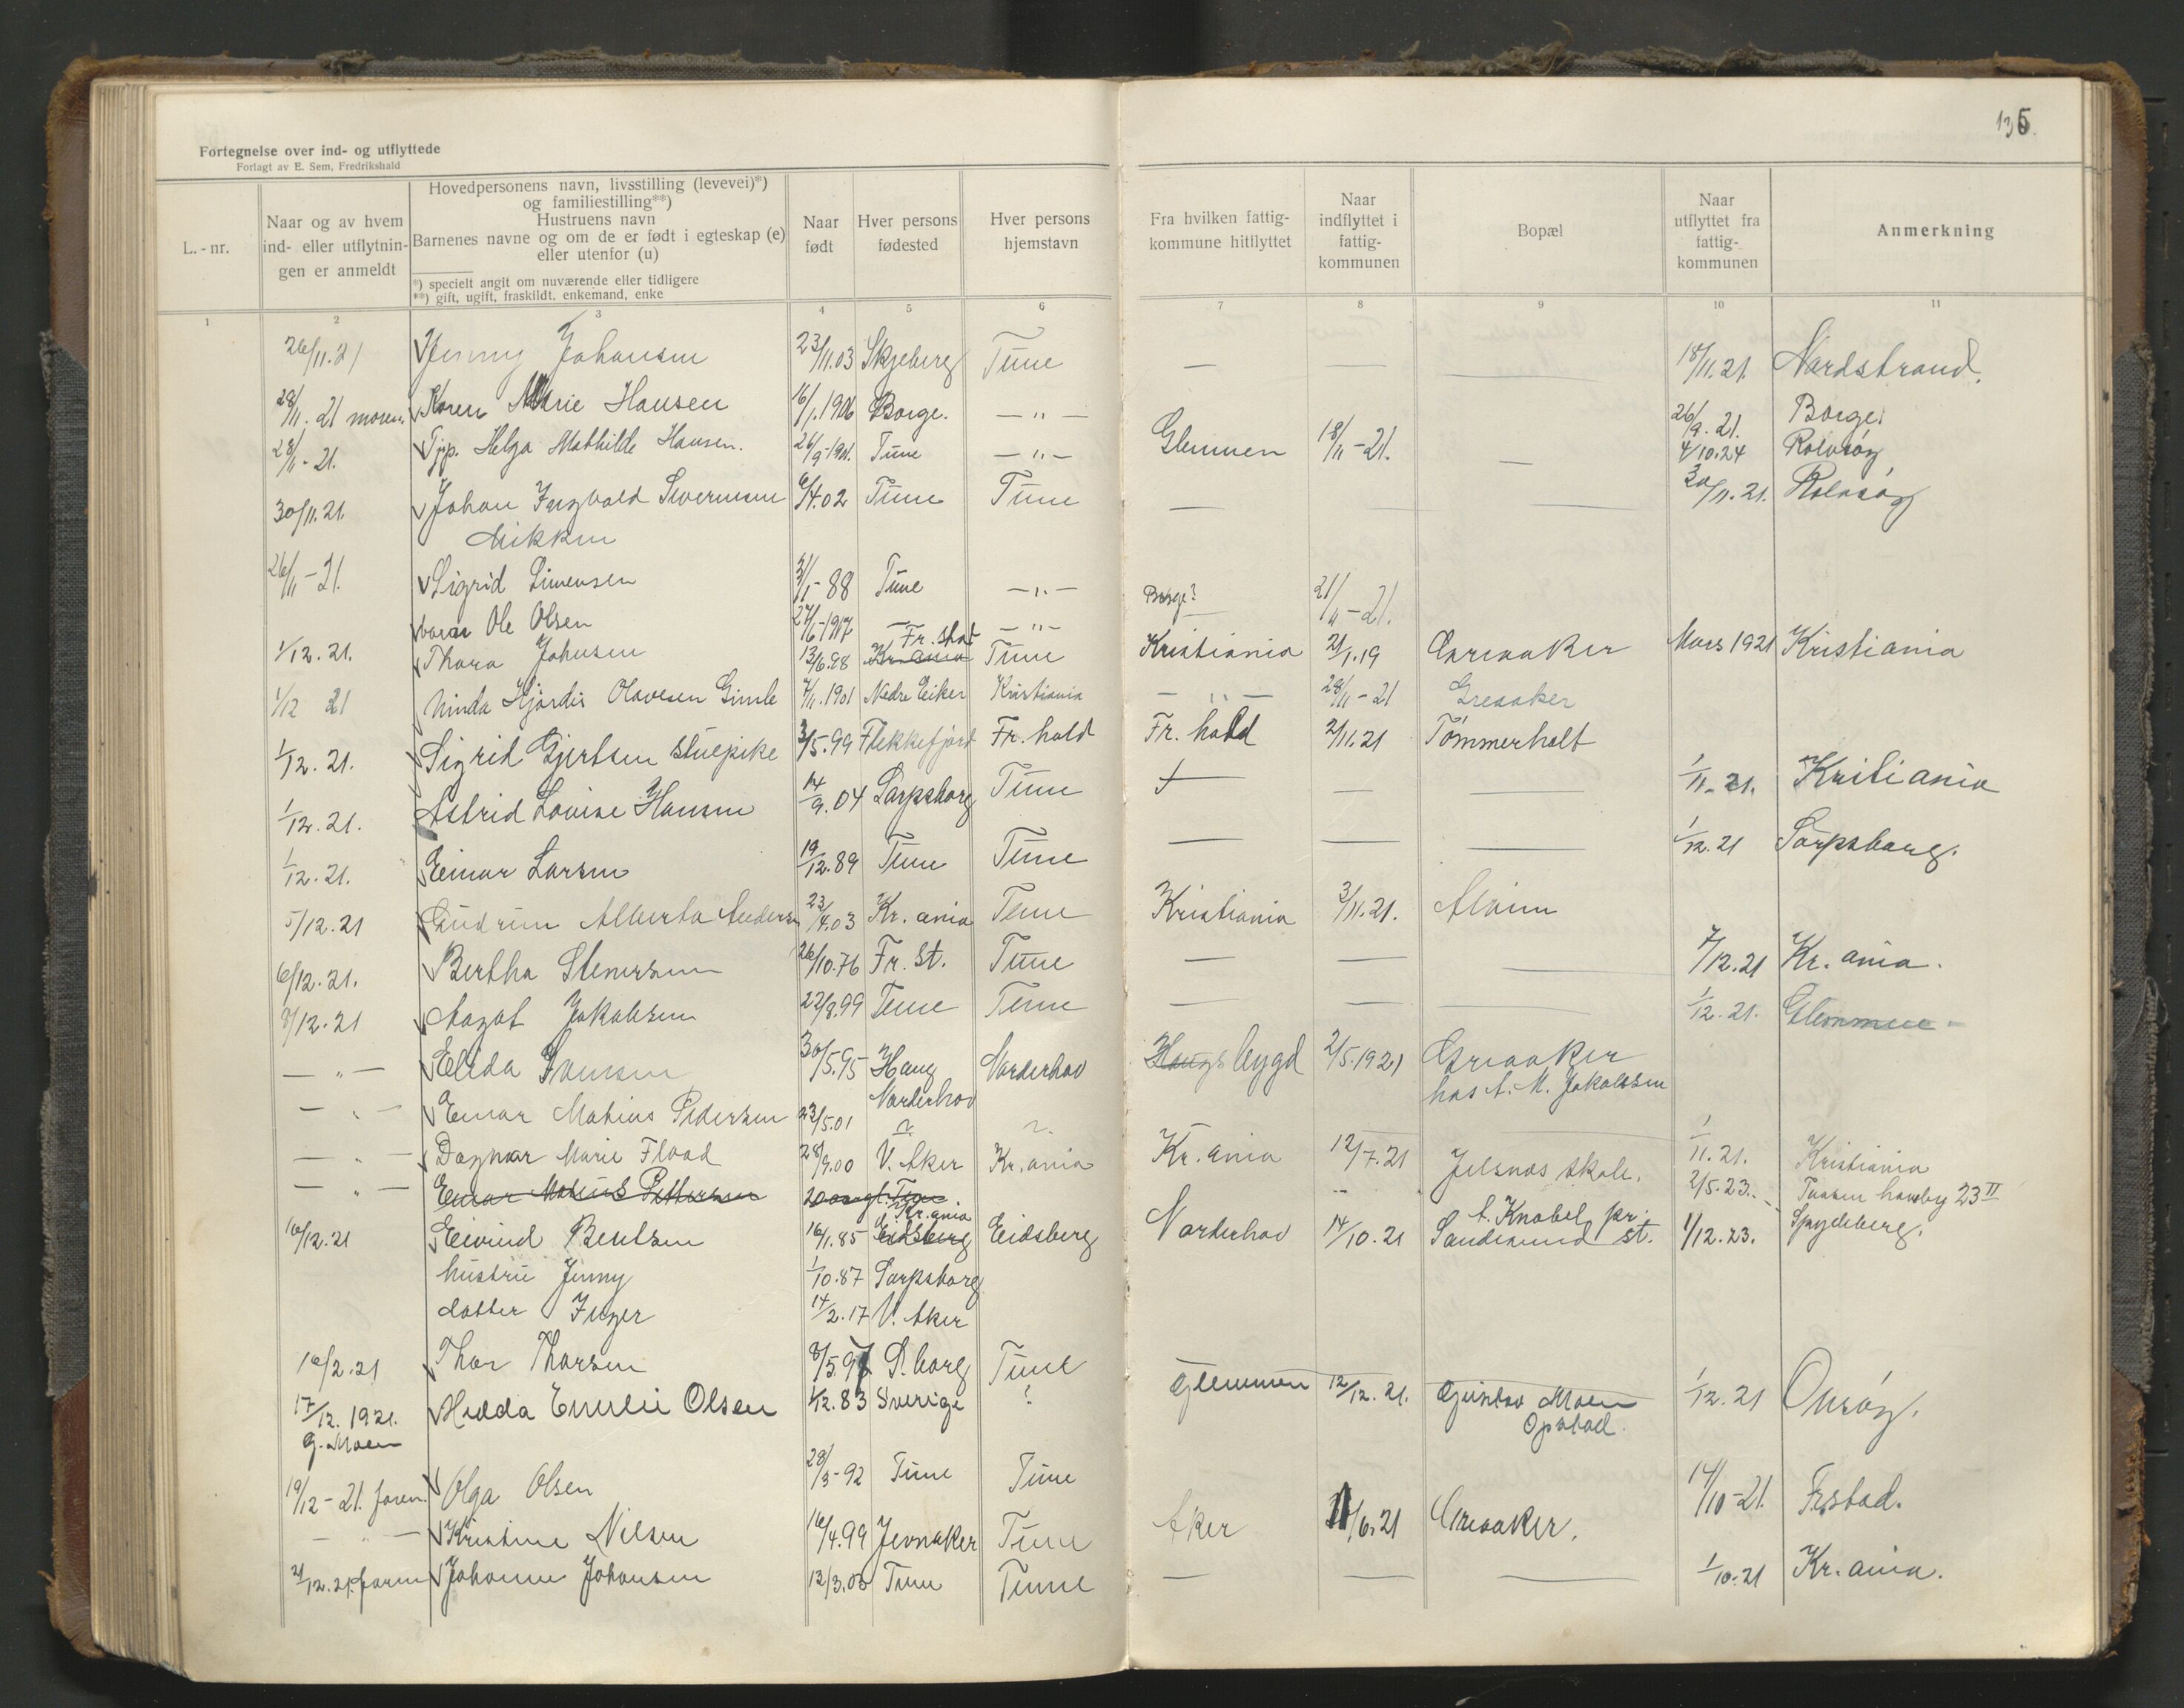 135.
Fortegnelse over ind- og utflyttede
Forlagt av E. Sem, Fredrikshald
L.-nr.
Naar og av hvem ind- eller utflytningen er anmeldt
Hovedpersonens navn, livsstilling (levevei)*)
og familiestilling**)
Hustruens navn
Barnenes navne og om de er født i egteskap (e)
eller utenfor (u)
*) specielt angit om nuværende eller tidligere
**) gift, ugift, fraskildt, enkemand, enke
Naar født
Hver persons fødested
Hver persons hjemstavn
Fra hvilken fattigkommune hitflyttet
Naar indflyttet i fattigkommunen
Bopæl
Naar utflyttet fra fattigkommunen
Anmerkning
1 2 3 4 5 6 7 8 9 10 11
26/11.21 Jenny Johansen 23/11.03 Skjeberg Tune — — — 18/11.21. Nordstrand.
28/11. 21 moren. Karen Marie Hansen 16/1.1906 Borge. — " — 26/9.21. Borge.
28/11-21. Tjp. Helga Mathilde Hansen. 26/9-1901. Tune — " — Glemmen 18/11-21. — 4/10.24 Rolvsøy
30/11.21. Johan Ingvald Syvernsen 6/4.02 Tune Tune — — — 30/11.21. Rolvsøy
Mikken
26/11-21. Sigrid Simensen 3/1-88 Tune — " — Borge? 21/11-21.
barn Ole Olsen 27/6-1917 — — " —
1/12.21. Thora Johnsen 13/6.98 Kr.ania Fr.stad Tune Kristiania 21/1.19 Greaaker Mars 1921 Kristiania
1/12 21 Ninda Hjørdis Olavesen Gimle 7/11.1901 Nedre Eiker Kristiania — " — 28/11-21 Greaaker
1/12.21. Sigrid Gjertsen stuepike 3/5.99 Flekkefjord Fr. hald Fr. hald 2/11.21 Tømmerholt
1/12.21. Astrid Lovise Hansen 14/9.04 Sarpsborg Tune — — — 1/11.21. Kristiania
1/12.21. Einar Larsen 19/12.89 Tune Tune — — — 1/12.21 Sarpsborg.
5/12.21 Gudrun Alberta Andersen 23/4.03 Kr. ania Tune Kristiania 3/11.21. Alvim
6/12.21. Bertha Stenersen 26/10.76 Fr. st. Tune — — — 7/12.21 Kr. ania.
8/12.21 Aagot Jakobsen 22/8.99 Tune Tune — — — 1/12.21. Glemmen
— " — Elida Svensen 30/5.95 Haug Norderhov Haugsbygd 2/5.1921 Greaaker
Norderhov hos A. M. Jakobsen
— " — Einar Mathias Pedersen 23/5.01 — 1/11.21. Kristiania
— " — Dagmar Marie Flood 28/9.00 V. Aker Kr. ania Kr. ania 12/7.21 Jelsnæs skole. 2/5.23.
— " — Einar Mathias Pettersen 20 aar gl. Tune
16/12.21 Eivind Bentsen 16/1.85 Eidsberg Kr.ania Eidsberg Norderhov 14/10.21 A. Knobel pr. Sandesund st. 1/12.23. Spydeberg.
hustru Jenny 1/10.87 Sarpsborg
datter Inger 14/2.17 V. Aker
16/2.21 Thor Thorsen 8/5.97 S. borg Tune — — — 1/12.21 Onsøy.
17/12.1921. Hedda Emilie Olsen 1/12.83 Sverige ? Glemmen 12/12.21. Gustav Moen
G. Moen Opstad.
19/12-21. foren. Olga Olsen 28/3-92 Tune Tune 14/10-21. Frstad.
— " — Kristine Nilsen 16/4.99 Jevnaker Tune Aker 1/6.21 Greaaker.
21/12.21. foren Johanne Johansen 12/3.03 Tune Tune — — — 1/10.21 Kr. ania.